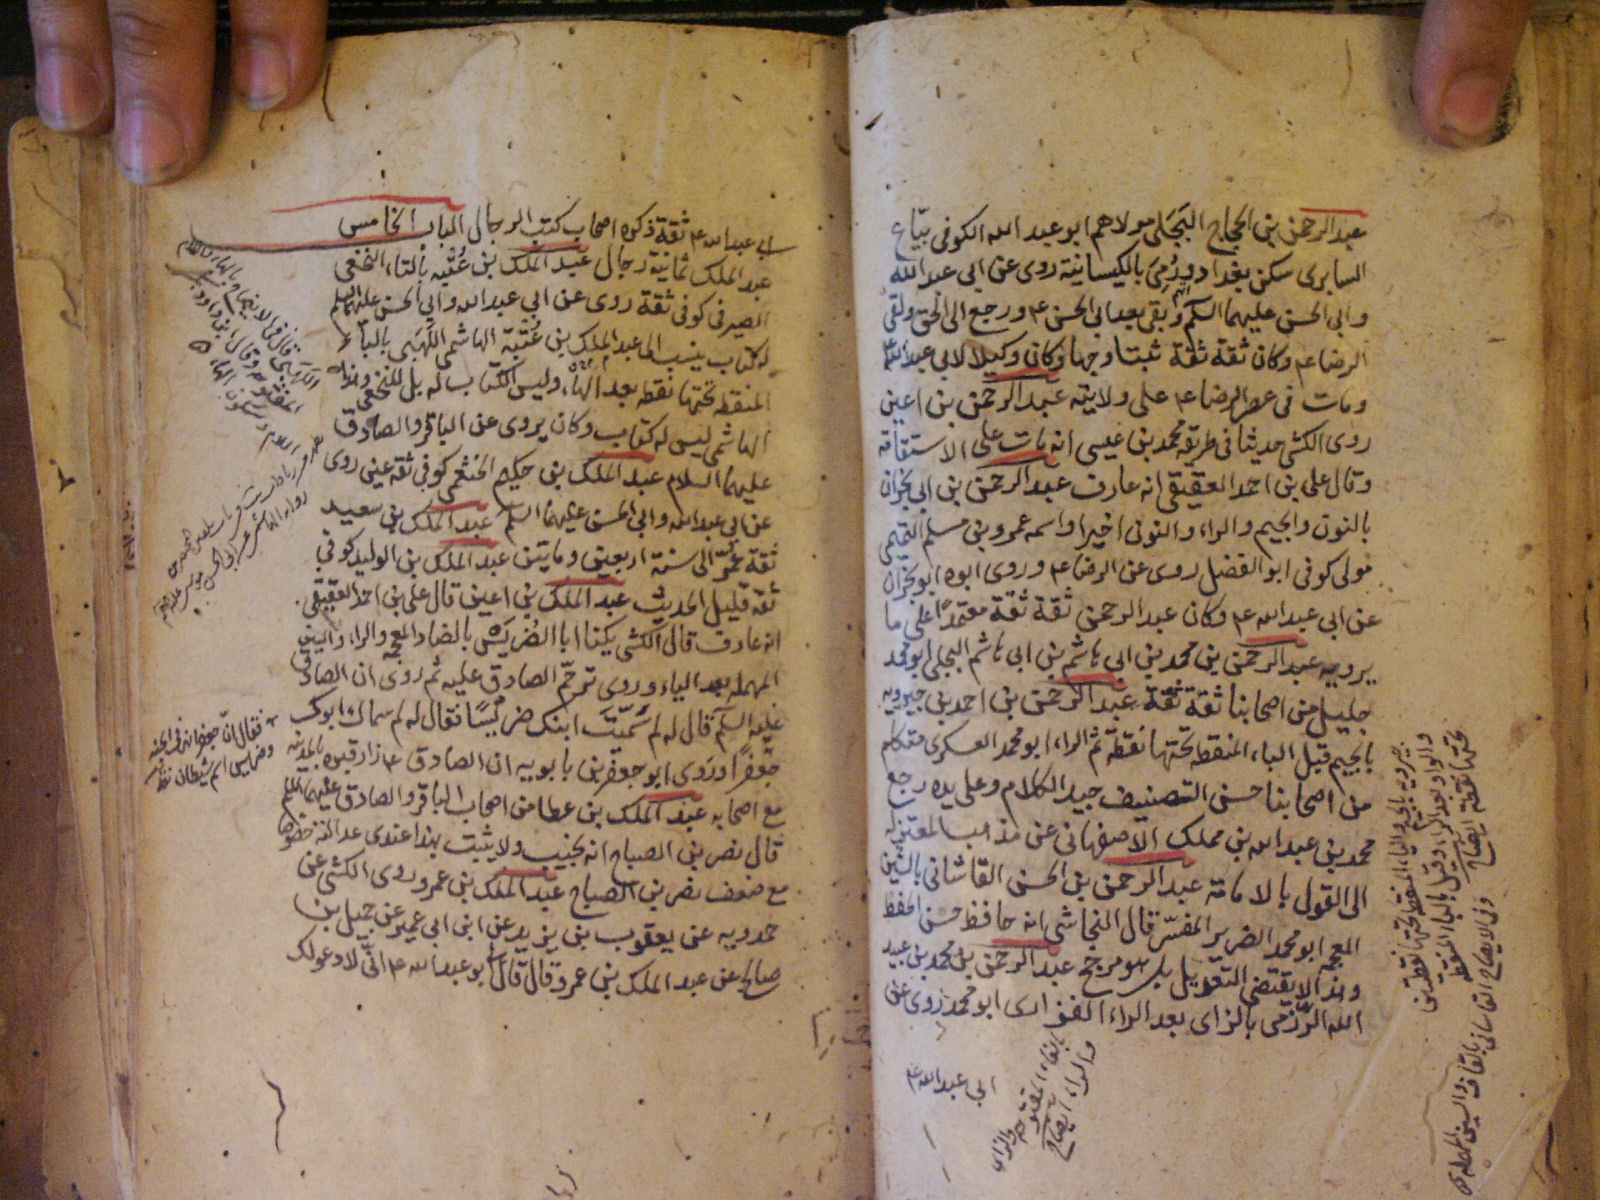 عبد الرحمن بن الحجاج البجلى مولاهم ابو عبد الله الكوفى بيّاع
السابرى سكن بغداد ورُمِىَ بالكيسانية روى عن ابى عبد الله
وابى الحسن عليهما السلم وبقى بعد ابى الحسن ع ورجع الى الحق ولقى
الرضا ع وكان ثقة ثقة ثبتا وجها وكان وكيلا لابى عبد الله ع
ومات فى عصر الرضا ع على ولايته عبد الرحمن بن اعين
روى الكشى حديثا فى طريقه محمد بن عيسى انه مات على الاستقامة
وقال على بن احمد العقيقى انه عارف عبد الرحمن بن ابى نجران
بالنون والجيم والراء والنون اخيرا واسمه عمرو بن مسلم التميمى
مولى كوفى ابو الفضل روى عن الرضا ع وروى ابوه ابو نجران
عن ابى عبد الله ع وكان عبد الرحمن ثقة ثقة معتمدًا على ما
يرويه عبد الرحمن بن محمد بن ابى هاشم بن ابى هاشم البجلى ابو محمد
جليل من اصحابنا ثقة ثقة عبد الرحمن بن احمد بن جبرويه
بالجيم قبل الباء المنقطة تحتها نقطة ثم الراء ابو محمد العسكرى متكلم
من اصحابنا حسن التصنيف جيد الكلام وعلى يده رجع
محمد بن عبد الله بن مملك الاصفهانى عن مذهب المعتزلة
الى القول بالامامة عبد الرحمن بن الحسن القاشانى بالشين
المعجمة ابو محمد الضرير المفسّر قال النجاشى انه حافظ حسن الحفظ
وهذا لا يقتضى التعديل بل هو مرجح عبد الرحمن بن محمد بن عبيد
الله الرّزمى بالزاى بعد الراء الفزارى ابو محمد روى عن
ابى عبد الله ع
جبرويه بالجيم والباء المنقطة تحتها نقطتين
والواو بعد الراء وقيل بالباء المنقطة
تحتها نقطة ايضاح
وفى الايضاح القاسانى بالقاف والسين المهملة
والراء ايضاح
ابى عبد الله ع ثقة ذكره اصحاب كتب الرجال الباب الخامس
عبد الملك ثمانية رجال عبد الملك بن عُتْبه بالتاء النخعى
الصيرفى كوفى ثقة روى عن ابى عبد الله وابى الحسن عليهما السلم
له كتاب ينسب الى عبد الملك بن عُتْبة الهاشمى اللَهبى بالباء
المنقطة تحتها نقطة بعد الهاء وليس الكتاب له بل للنخعى وهذا
الهاشمى ليس له كتاب وكان يروى عن الباقر والصادق
عليهما السلام عبد الملك بن حكيم الخثعمى كوفى ثقة عين روى
عن ابى عبد الله وابى الحسن عليهما السلم عبد الملك بن سعيد
ثقة عُمِّر الى سنة اربعين ومايتين عبد الملك بن الوليد كوفى
ثقة قليل الحديث عبد الملك بن اعين قال على بن احمد العقيقى
انه عارف قال الكشى يكنا ابا الضُريَس بالضاد المعجمة والراء والسين
المهملة بعد الياء وروى ترحّم الصادق عليه ثم روى ان الصادق
عليه السلم قال له لم سَمّيتَ ابنك ضريسًا فقال له لم سماك ابوك
جعفرًا وروى ابو جعفر بن بابويه ان الصادق ع زار قبره بالمدينة
مع اصحابه عبد الملك بن عطا من اصحاب الباقر والصادق عليهما السلم
قال نصر بن الصباح انه نجيب ولا يثبت بهذا عندى عدالته خصوصا
مع ضعف نصر بن الصباح عبد الملك بن عمرو روى الكشى عن
حمدويه عن يعقوب بن يزيد عن ابن ابى عمير عن جميل بن
صالح عن عبد الملك بن عمرو قال قال لى ابو عبد الله ع انى لادعو لك
فقال انّ جعفرا نهر فى الجنة
وضريس اسم شيطان